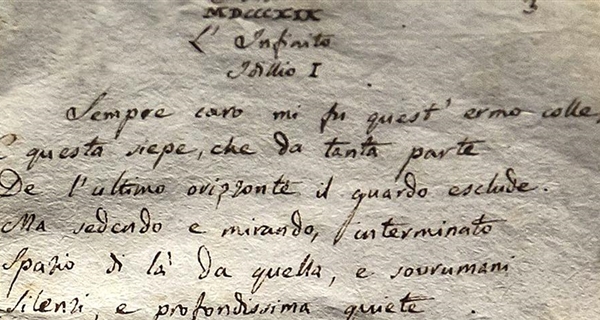 MDCCCXIX 3
L' Infinito
Idillio I
Sempre caro mi fu quest' ermo colle,
E questa siepe, che da tanta parte
De l'ultimo orizzonte il guardo esclude.
Ma sedendo e mirando, interminato
Spazio di là da quella, e sovrumani
Silenzi, e profondissima quiete